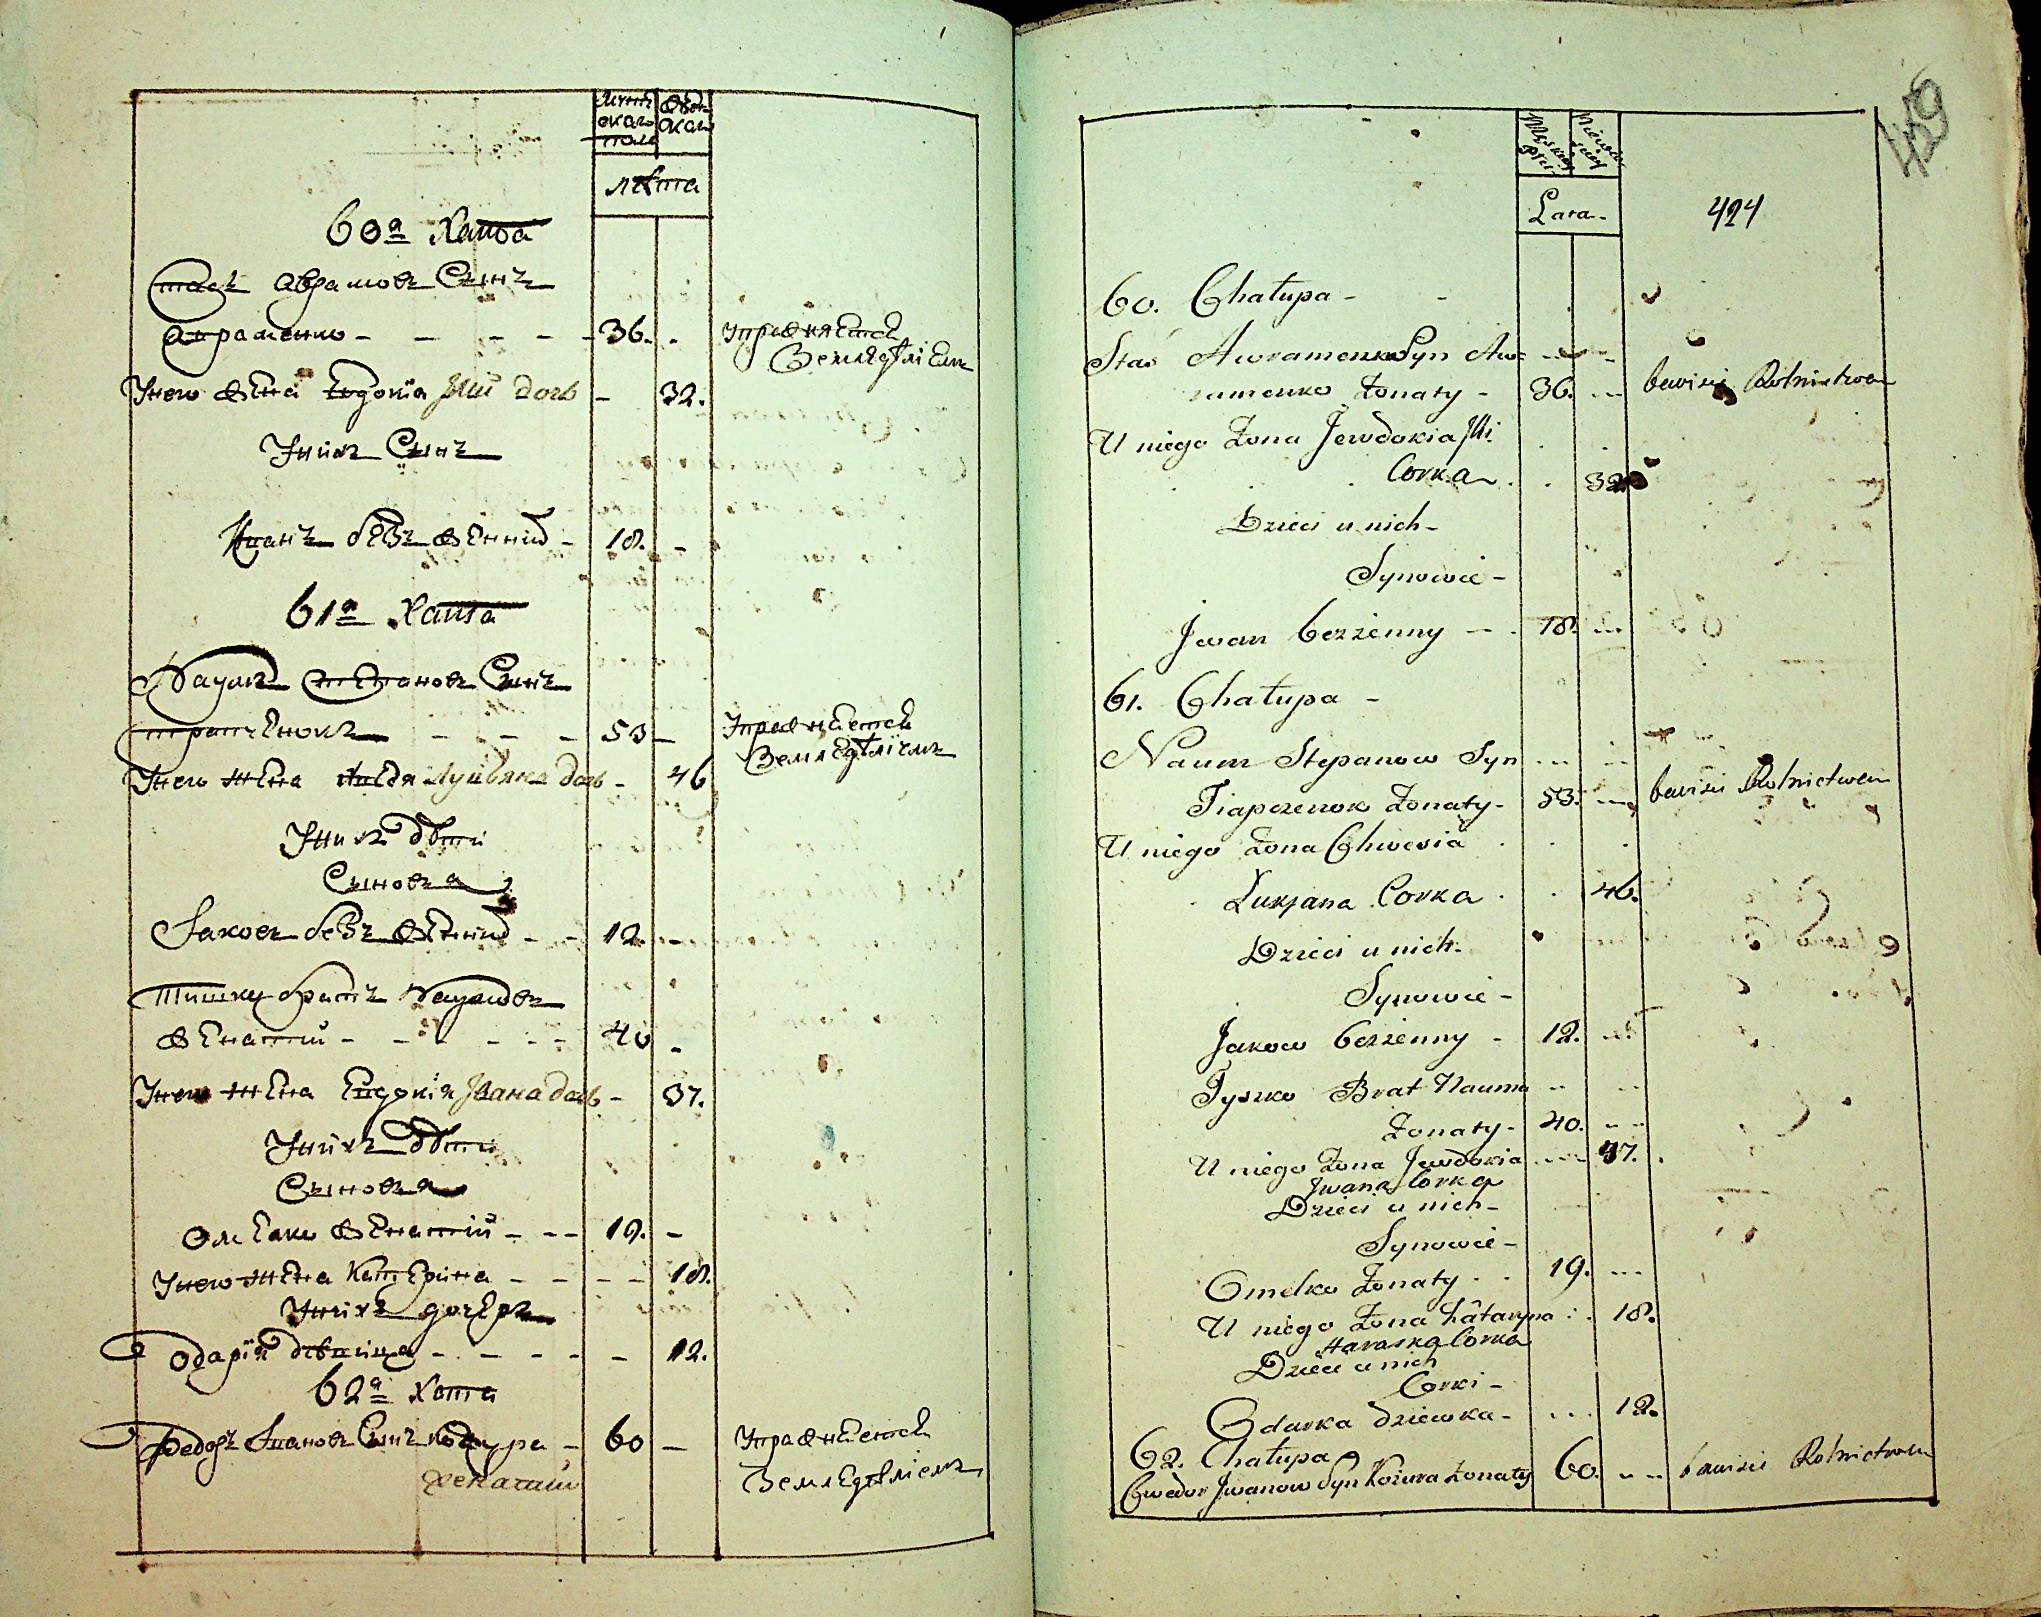 мужескаго пола
женскаго
лѣта
60а Хата
Стась Аврамовъ Сынъ
Авраменко - - - - - 36. -
Упражняется
Земледѣліемъ
Унего жена Евдокія Илі дочь - 32.
Унихъ Сынъ
Иванъ безъ женній - 18. -
61а Хата
Наумъ Степановъ Сынъ
- - - - 53 -
Упражняется
Земледѣліемъ
Унего жена Лукіяна дочь - 46
Унихъ дѣти
Сыновья
Іаковъ безъ женній - - 12. -
Тишку братъ Наумовъ
женатій - - - - - - 40 -
Унего жена Евдокія Івана дочь - 37.
Унихъ дѣти
Сыновья
Омелко женатій - - - 19. -
Унего жена Катерина - - - - 18.
Унихъ дочеръ
Одарія дѣвица - - - - - 12.
62а Хата
Федоръ Івановъ Сынъ Кожура - 60 -
женатій
Упражняется
Земледѣліемъ
459
Męskiey Płci
Niewieściey
Lata.
424
60. Chałupa - -
Staś Awramenko Syn Aw=
ramenko Żonaty - 36. --- bawi się Rolnictwem
U niego Żona Jewdokia Ili.
Corka 32.
Dzieci u nich -
Synowie -
Jwan bezżenny - - 18. ---
61. Chałupa -
Naum Stepanow Syn --- ---
Tiapczenok Żonaty - 53. --- bawi się Rolnictwem
U niego Żona Chwesia
Łukjana Corka 46.
Dzieci u nich.
Synowie -
Jakow bezżenny - 12. ---
Tyszko Brat Nauma -- --
Żonaty - 40. ---
U niego Żona Jewdokia --- 37.
Jwana Corka
Dzieci u nich -
Synowie -
Omelko Żonaty . . 19. ---
U niego Żona Kataryna : . 18.
Haraska Corka
Dzieci u nich
Corki -
Odarka dziewka - ... 12.
62. Chałupa
Chwedor Jwanow Syn Kożura Żonaty 60. -- -- bawi się Rolnictwem